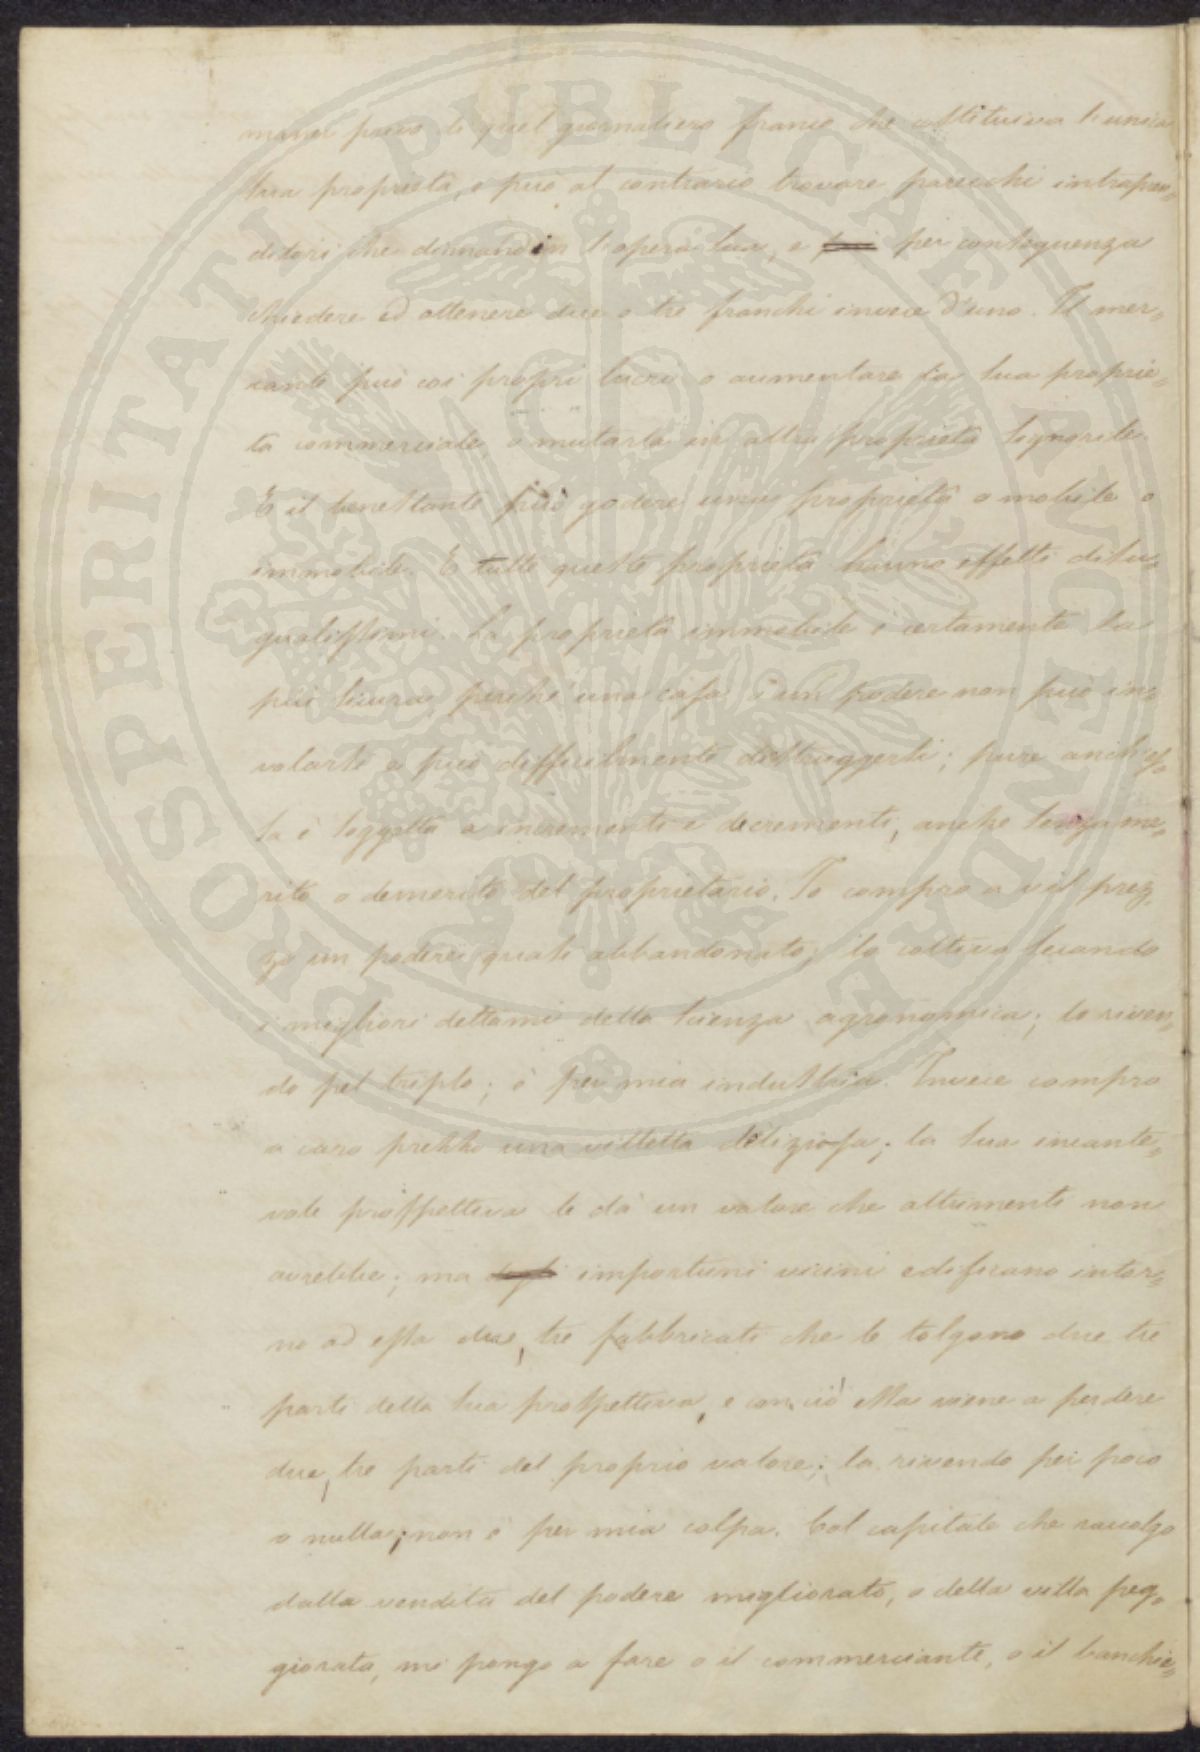 maner privo di quel giornaliero franco che costituiva l'unica
sua proprietà, e può al contrario trovare parecchi intrapren=
ditori che dimandin l'opera sua, e per conseguenza
chiedere ed ottenere due o tre franchi invece d'uno. Il mer=
cante può coi propri lucri o aumentare la sua proprie=
tà commerciale, o mutarla in altra proprietà signorile.
E il benestante può godere una proprietà o mobile o
immobile. E tutte queste proprietà hanno effetti disu=
gualissimi. La proprietà immobile è certamente la
più sicura, perché una casa o un podere non può in=
volarsi e può difficilmente distruggersi; pure anch'es=
sa è soggetta a incrementi e decrementi, anche senza me=
rito o demerito del proprietario. Io compro a vil prez=
zo un podere quasi abbandonato; lo coltivo secondo
i migliori dettami della scienza agronomica; lo riven=
do pel triplo; è per mia industria. Invece compro
a caro prezzo una villetta deliziosa; la sua incante=
vole prospettiva le dà un valore che altrimenti non
avrebbe; ma importuni vicini edificano intor=
no ad essa due, tre fabbricati che le tolgono due tre
parti della sua prospettiva, e con ciò essa viene a perdere
due, tre parti del proprio valore; la rivendo per poco
o nulla; non è per mia colpa. Col capitale che raccolgo
dalla vendita del podere migliorato, o della villa peg=
giorata, mi pongo a fare o il commerciante, o il banchie=
PROSPERITATI PVBLICAE AVGENDAE